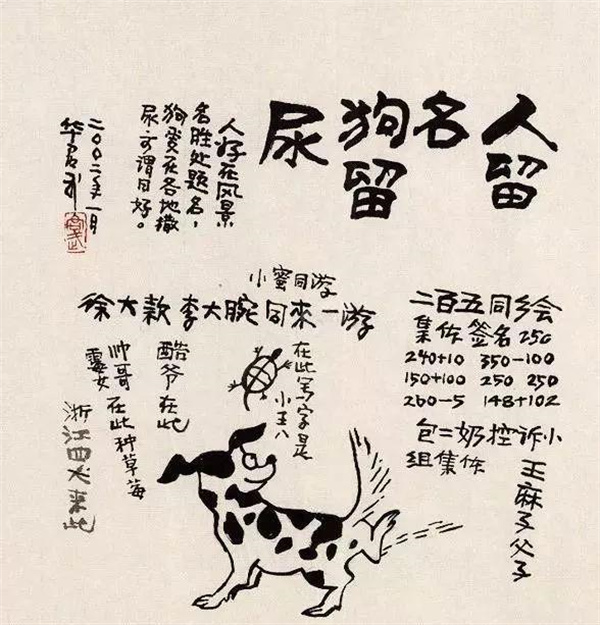 人留
名
狗留
尿
人好在风景
名胜处题名，
狗爱在各地撒
尿可谓同好。
二〇〇二年一月
华君武
二百五同乡会
集体签名 250
240+10 350-100
150+100 250 250
260-5 148+102
包二奶控诉小
组集体
王麻子父子
小蜜同游
徐大款李大腕同来一游
在此写字是
小王八
酷爷在此
帅哥霉女在此种草莓
浙江四犬来此